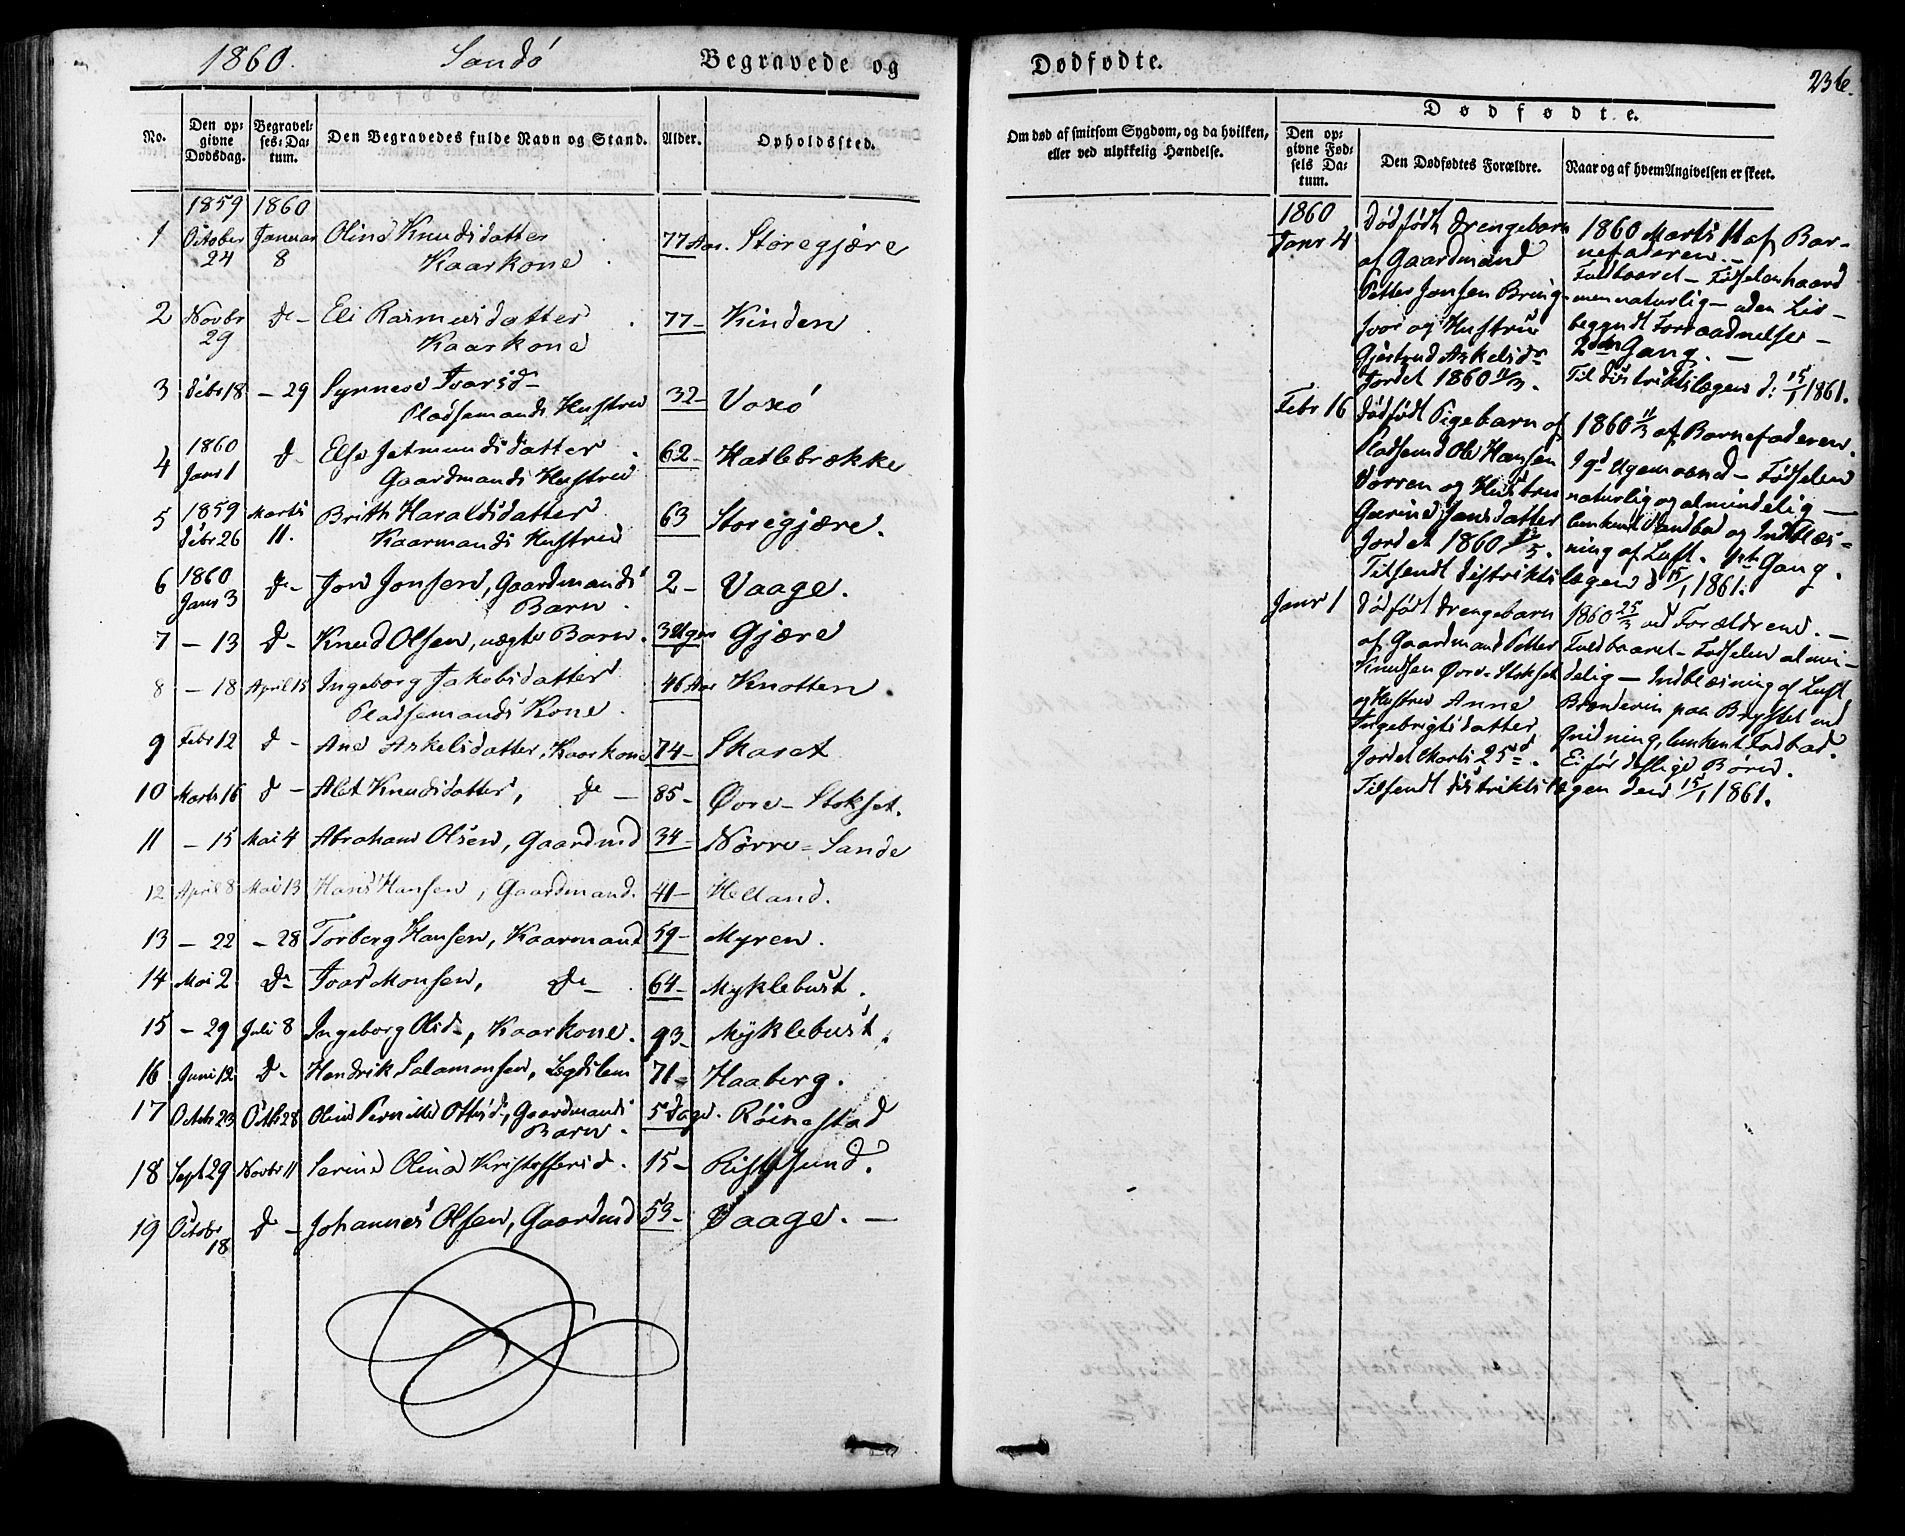 1860. Sandø Begravede og
No. Den opgivne Dødsdag. Begravelses-Datum. Den Begravedes fulde Navn og Stand. Alder. Opholdssted.
1859 1860
1 October 24 Januar 8 Olina Knudsdatter Kaarkone 77 Aar. Storegjære
2 Novbr 29 do – Eli Rasmusdatter Kaarkone 77 – Kinden
3 Debr 18 – 29 Synneve Ivarsd– Pladsemands Hustru 32 – Voxø
4 1860 Janr 1 do Else Jetmundsdatter Gaardmands Hustru 62 – Hatlebrække
5 1859 Debr 26 Marts 11. Brith Haraldsdatter Kaarmands Hustru 63 Storegjære.
6 1860 Janr 3 do – Jon Jonsen, Gaardmands Barn. 2 – Vaage.
7 – 13 do – Knud Olsen, uægte Barn. 3 Uger Gjære
8 – 18 April 15 Ingeborg Jakobsdatter Pladsemands Kone. 46 Aar Knotten.
9 Febr 12 do – Ane Askelsdatter, Kaarkone 74 – Skaret
10 Marts 16 do – Alet Knudsdatter, do – 85 – Øvre-Stokset.
11 – 15 Mai 4 Abraham Olsen, Gaardmd 34 – Nørre-Sande
12 April 8 Mai 13 Hans Hansen, Gaardmand. 41 – Helland.
13 – 22 – 28 Torberg Hansen, Kaarmand 59 – Myren.
14 Mai 2 do Ivar Monsen, do – 64 – Myklebust.
15 – 29 Juli 8 Ingeborg Olsd–, Kaarkone. 93 – Myklebust.
16 Juni 12 do – Hendrik Salamonsen, Legdslem 71 – Haaberg.
17 Octbr 23 Octb 28 Olina Pernille Ottesd–, Gaardmands Barn. 5 Dage. Røinestad
18 Sept 29 Novbr 11 Serine Olina Kristoffersd. 15 – Ristesund.
19 Octobr 18 do – Johannes Olsen, Gaardmd 53 – Vaage. –
Dødfødte. 236.
Dødfødte.
Om død af smitsom Sygdom, og da hvilken, eller ved ulykkelig Hændelse. Den opgivne Fødsels Datum. Den Dødfødtes Forældre. Naar og af hvem Angivelsen er skeet.
1860
Janr 4 Dødfødt Drengebarn 1860 Marts 11 af Bar-
af Gaardmand nefaderen. –
Petter Jonsen Bring- Fuldbaaret – Fødselen haard
svor og Hustru men naturlig – uden Liv –
Gjertrud Askelsdr begyndt Forraadnelse –
Jordet 1860 11/3. 2den Gang. –
Til Distriktslægen d: 15/1 1861.
Febr 16 Dødfødt Pigebarn af 1860 11/3 af Barnefaderen.
Pladsemd Ole Hansen Ugemaaned – Fødselen
Dørren og Hustru naturlig og almindelig –
Gurine Jansdatter lunkent Vandbad og Indblæs-
Jordet 1860 /5. ning af Luft. Gang.
Tilsendt Distriktslægen d 15/1 1861.
Janr 1 Dødfødt Drengebarn 1860 25/3 ved Forældrene. –
af Gaardmand Petter Fuldbaaret – Fødselen almin-
Knudsen Øvre-Stokset delig – Indblæsning af Luft
og Hustru Anne Brændevin paa Brystet ved
Ingebrigtsdatter, Gnidning, lunkent Fodbad.
Jordet Marts 25d. Ei før deslige Børn.
Tilsendt Distriktslægen den 15/1 1861.